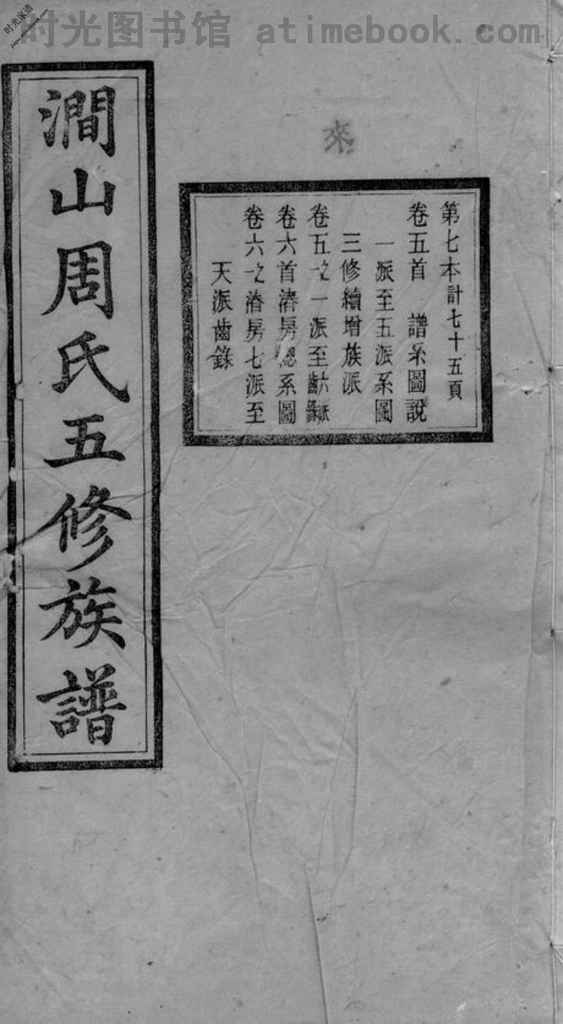 时光图书馆 atimebook.com
來
第七本計七十五頁
卷五首 譜系圖說
一派至五派系圖
三修續增族派
卷五之一派至
卷六首濬房總系圖
卷六之濬房七派至
天派齒錄
澗山周氏五修族譜